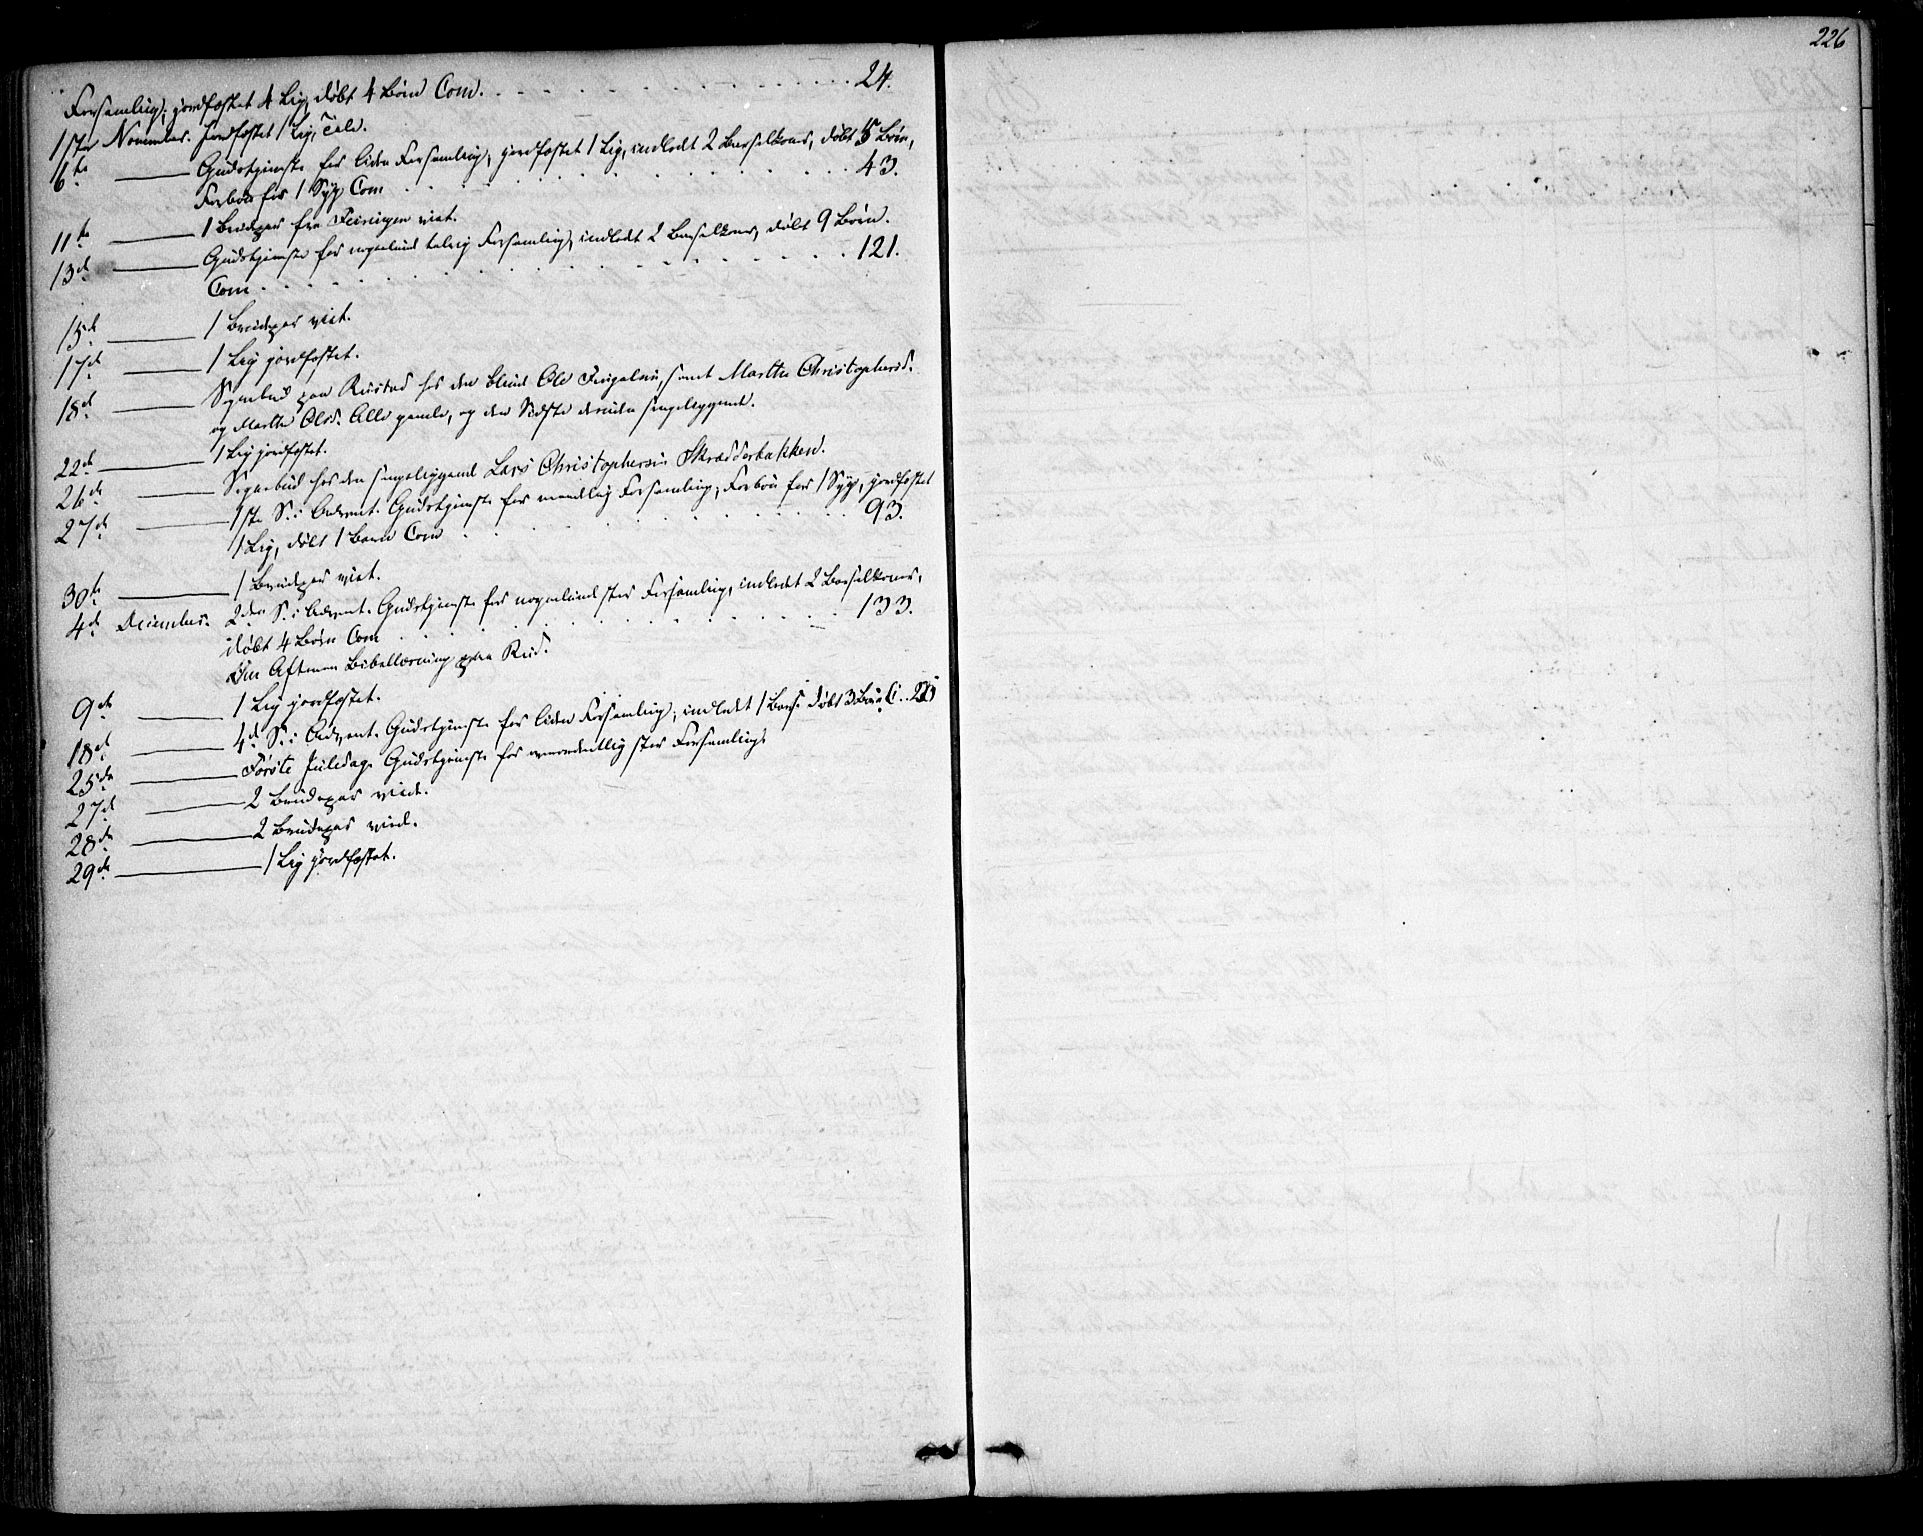 226
Forsamling; jordfæstet 4 Lig, døbt 4 Børn Com. . . . . 24.
1ste November. Jordfæstet 1 Lig, Tale.
6te — Gudstjeneste for liden Forsamling, jordfæstet 1 Lig, indledt 2 Barselkoner, døbt 5 Børn,
Forbøn for 1 Syg Com . . . . 43.
11te — 1 Brudepar fra Feiringen viet.
13de — Gudstjeneste for nogenlund talrig Forsamling, indledt 2 Barselkoner, døbt 9 Børn.
Com . . . . 121.
15de — 1 Brudepar viet.
17de — 1 Lig jordfæstet.
18de — Sognebud paa Rustad hos den blinde Ole Ingelsen, samt Marthe Christophersd.
og Marthe Olsd. Alle gamle, og den Sidste desuden sengeliggende.
22de — 1 Lig jordfæstet.
26de — Sognebud hos den sengeliggende Lars Christophersen Skrædderbakken.
27de — 1ste S. i Advent. Gudstjeneste for maadelig Forsamling, Forbøn for 1 Syg, jordfæstet
1 Lig, døbt 1 Barn Com . . . . 93.
30te — 1 Brudepar viet.
4de December. 2den S. i Advent. Gudstjeneste for nogenlund stor Forsamling, indledt 2 Barselkoner,
døbt 4 Børn Com . . . . 133.
Om Aftenen Bibellæsning paa Rud.
9de — 1 Lig jordfæstet.
18de — 4de S. i Advent. Gudstjeneste for liden Forsamling, indledt 1 Barse døbt 3 Børn C. . .
25de — Første Juledag. Gudstjeneste for overordentlig stor Forsamling.
27de — 2 Brudepar viede.
28de — 2 Brudepar vied.
29de — 1 Lig jordfæstet.